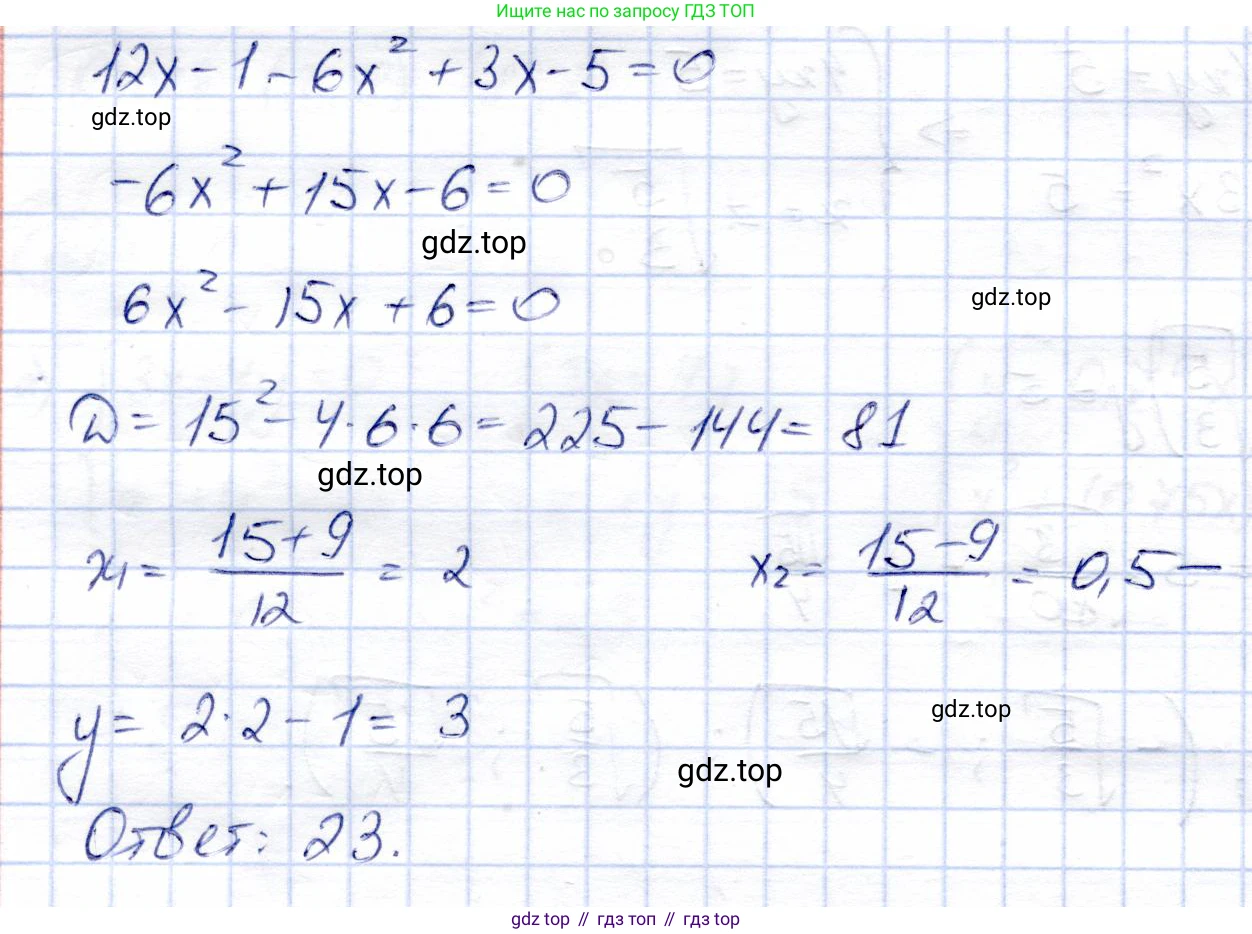 Ищите нас по запросу ГДЗ ТОП
12x - 1 - 6x² + 3x - 5 = 0
gdz.top
-6x² + 15x - 6 = 0
gdz.top
6x² - 15x + 6 = 0
gdz.top
D = 15² - 4·6·6 = 225 - 144 = 81
gdz.top
x₁ = (15+9)/12 = 2 x₂ = (15-9)/12 = 0,5 —
y = 2·2 - 1 = 3
gdz.top
gdz.top
Ответ: 23.
gdz.top // гдз топ // гдз top